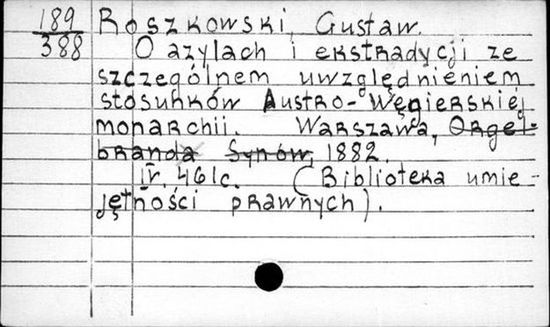 189 Roszkowski, Gustaw.
388 O azylach i ekstradycji ze
szczególnem uwzględnieniem
stosunków Austro-Węgierskiej
monarchii. Warszawa, Orgel-
branda Synów, 1882.
IV. 461c. (Biblioteka umie-
jętności prawnych).